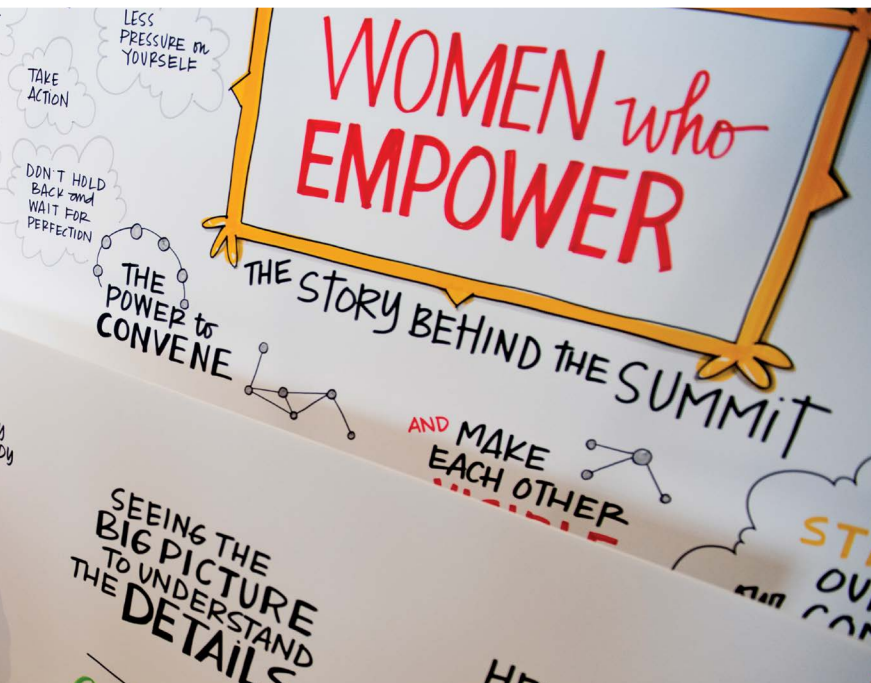 LESS
PRESSURE on
YOURSELF
TAKE
ACTION
DON'T HOLD
BACK and
WAIT FOR
PERFECTION
WOMEN who
EMPOWER
THE STORY BEHIND THE SUMMIT
THE
POWER to
CONVENE
AND MAKE
EACH OTHER
VISIBLE
SEEING THE
BIG PICTURE
TO UNDERSTAND
THE DETAILS